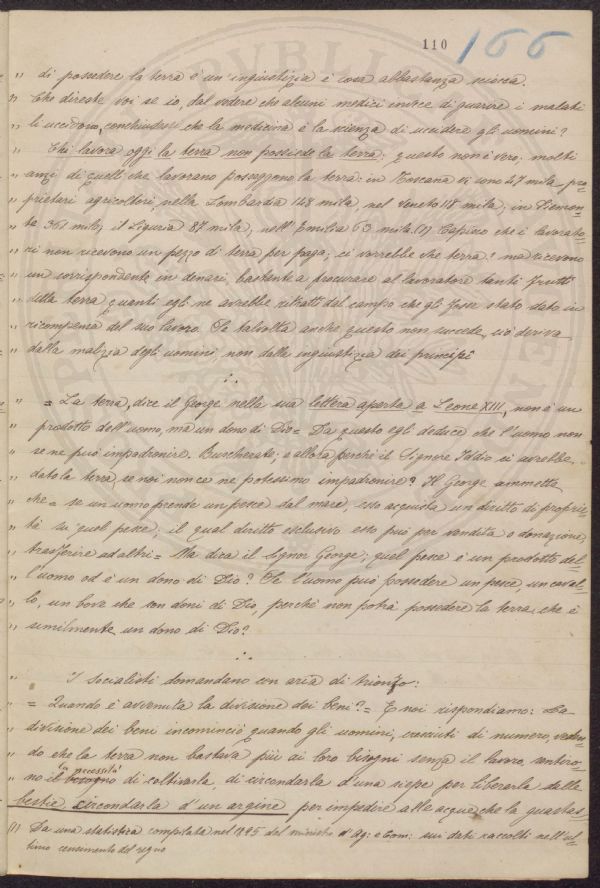 110 166
" di possedere la terra è un'ingiustizia è cosa abbastanza sciocca.
" Che direste voi se io, dal vedere che alcuni medici invece di guarire i malati
" li uccidono, conchiudessi che la medicina è la scienza di uccidere gli uomini?
" Chi lavora oggi la terra non possiede la terra; questo non è vero; molti
" anzi di quelli che lavorano posseggono la terra: in Toscana vi sono 47 mila pro=
" prietari agricoltori, nella Lombardia 148 mila, nel veneto 118 mila; in Piemon=
" te 361 mila, il Liguria 87 mila, nell'Emilia 63 mila (1) Capisco che i lavorato=
" ri non ricevono un pezzo di terra per paga; ci vorrebbe che terra! ma ricevono
" un corrispondente in denari, bastante a procurare al lavoratore tanti frutti
" della terra, quanti egli ne avrebbe ritratti dal campo che gli fosse stato dato in
" ricompensa del suo lavoro. Se talvolta anche questo non succede, ciò deriva
" dalla malizia degli uomini, non dalla ingiustizia dei principi
∴
" = La terra, dice il George nella sua lettera aperta a Leone XIII, non è un
" prodotto dell'uomo, ma un dono di Dio = Da questo egli deduce che l'uomo non
" se ne può impadronire. Buscherate; e allora perchè il Signore Iddio ci avrebbe
" dato la terra, se noi non ce ne potessimo impadronire? Il George ammette
" che = se un uomo prende un pesce dal mare, esso acquista un diritto di proprie=
" tà su quel pesce; il qual diritto esclusivo esso può per vendita o donazione,
" trasferire ad altri = Ma dica il signor George; quel pesce è un prodotto del=
" l'uomo od è un dono di Dio? Se l'uomo può possedere un pesce, un caval=
" lo, un bove che son doni di Dio, perchè non potrà possedere la terra, che è
" similmente un dono di Dio?
∴
" I socialisti domandano con aria di trionfo:
" = Quando è avvenuta la divisione dei beni? = E noi rispondiamo: La
" divisione dei beni incominciò quando gli uomini, cresciuti di numero, veden=
" do che la terra non bastava più ai loro bisogni senza il lavoro, sentiro=
la necessità
" no il bisogno di coltivarla, di circondarla d'una siepe per liberarla dalle
" bestie, circondarla d'un argine per impedire alle acque che la guastas=
(1) Da una statistica compilata nel 1895 dal ministro d'Ag: e Com: sui dati raccolti nell'ul=
timo censimento del regno